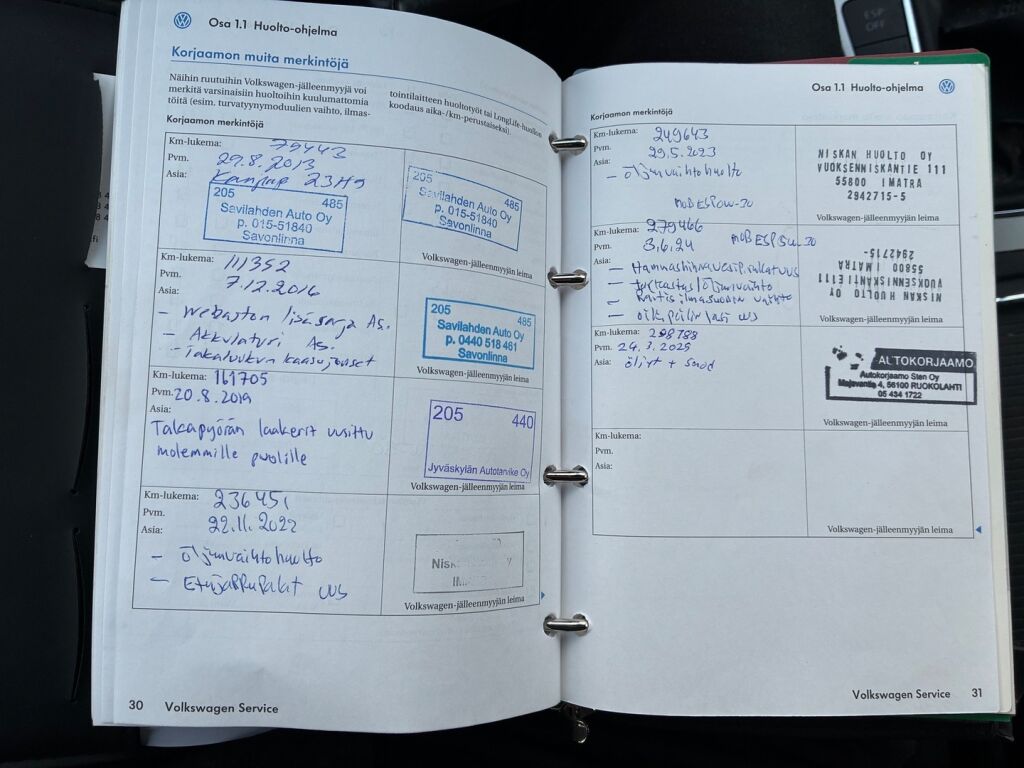 Osa 1.1 Huolto-ohjelma
Korjaamon muita merkintöjä
Näihin ruutuihin Volkswagen-jälleenmyyjä voi
merkitä varsinaisiin huoltoihin kuulumattomia
töitä (esim. turvatyynymoduulien vaihto, ilmas-
tointilaitteen huoltotyöt tai LongLife-huollon
koodaus aika-/km-perustaiseksi).
Korjaamon merkintöjä
Km-lukema: 79443
Pvm. 29.8.2013
Asia:
205 485
Savilahden Auto Oy
p. 015-51840
Savonlinna
205 485
Savilahden Auto Oy
p. 015-51840
Savonlinna
Volkswagen-jälleenmyyjän leima
Km-lukema: 111352
Pvm. 7.12.2016
Asia:
- Webaston lisäsarja As.
- Akkulaturi As.
- Takaluukun kaasujouset
205 485
Savilahden Auto Oy
p. 0440 518 461
Savonlinna
Volkswagen-jälleenmyyjän leima
Km-lukema: 161705
Pvm. 20.8.2019
Asia:
Takapyörän laakerit uusittu
molemmille puolille
205 440
Jyväskylän Autotarvike Oy
Volkswagen-jälleenmyyjän leima
Km-lukema: 236451
Pvm. 22.11.2022
Asia:
- öljynvaihtohuolto
- Etujarrupalat uus
Nisk
Volkswagen-jälleenmyyjän leima
30 Volkswagen Service
Osa 1.1 Huolto-ohjelma
Korjaamon merkintöjä
Km-lukema: 249643
Pvm. 29.5.2023
Asia:
- öljynvaihtohuolto
NISKAN HUOLTO OY
VUOKSENNISKANTIE 111
55800 IMATRA
2942715-5
Volkswagen-jälleenmyyjän leima
Km-lukema: 279466
Pvm. 3.6.24
Asia:
- öljynvaihto
- Raitisilmasuodin vaihto
NISKAN HUOLTO OY
55800 IMATRA
2942715-
Volkswagen-jälleenmyyjän leima
Km-lukema: 298788
Pvm. 24.3.2025
Asia: öljyt + suod
AUTOKORJAAMO
Autokorjaamo Sten Oy
Majavantie 4, 56100 RUOKOLAHTI
05 434 1722
Volkswagen-jälleenmyyjän leima
Km-lukema:
Pvm.
Asia:
Volkswagen-jälleenmyyjän leima
Volkswagen Service 31
ESP
OFF